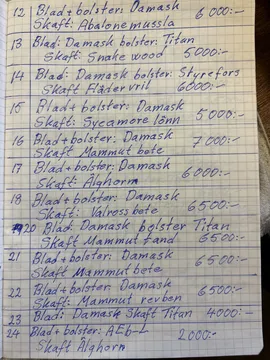 12 Blad+bolster: Damask
Skaft: Abalonemussla 6000:-
13 Blad: Damask bolster: Titan
Skaft: Snake wood 5000:-
14 Blad: Damask bolster: Styrefors
Skaft Flädervril 6000:-
15 Blad+bolster: Damask
Skaft: Sycamore lönn 5000:-
16 Blad+bolster: Damask
Skaft Mammut bete 7000:-
17 Blad+bolster: Damask
Skaft: Älghorn 6000:-
18 Blad+bolster: Damask
Skaft: Valrossbete 6500:-
20 Blad: Damask bolster Titan
Skaft Mammut tand 6500:-
21 Blad+bolster: Damask
Skaft Mammut bete 6500:-
22 Blad+bolster: Damask
Skaft: Mammut revben 6500:-
23 Blad: Damask Skaft Titan 4000:-
24 Blad+bolster: AEb-L
Skaft Älghorn 2000:-